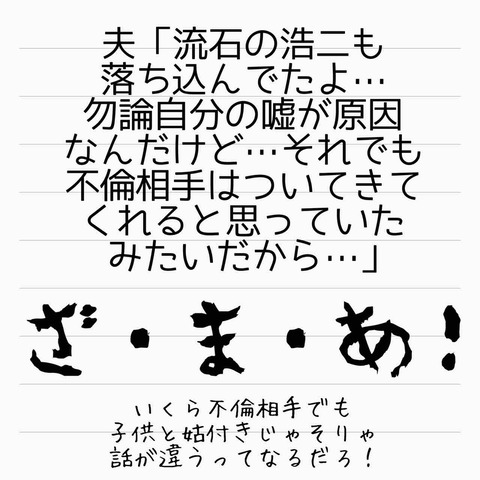 夫「流石の浩二も
落ち込んでたよ…
勿論自分の嘘が原因
なんだけど…それでも
不倫相手はついてきて
くれると思っていた
みたいだから…」
ざ・ま・あ!
いくら不倫相手でも
子供と姑付きじゃそりゃ
話が違うってなるだろ!